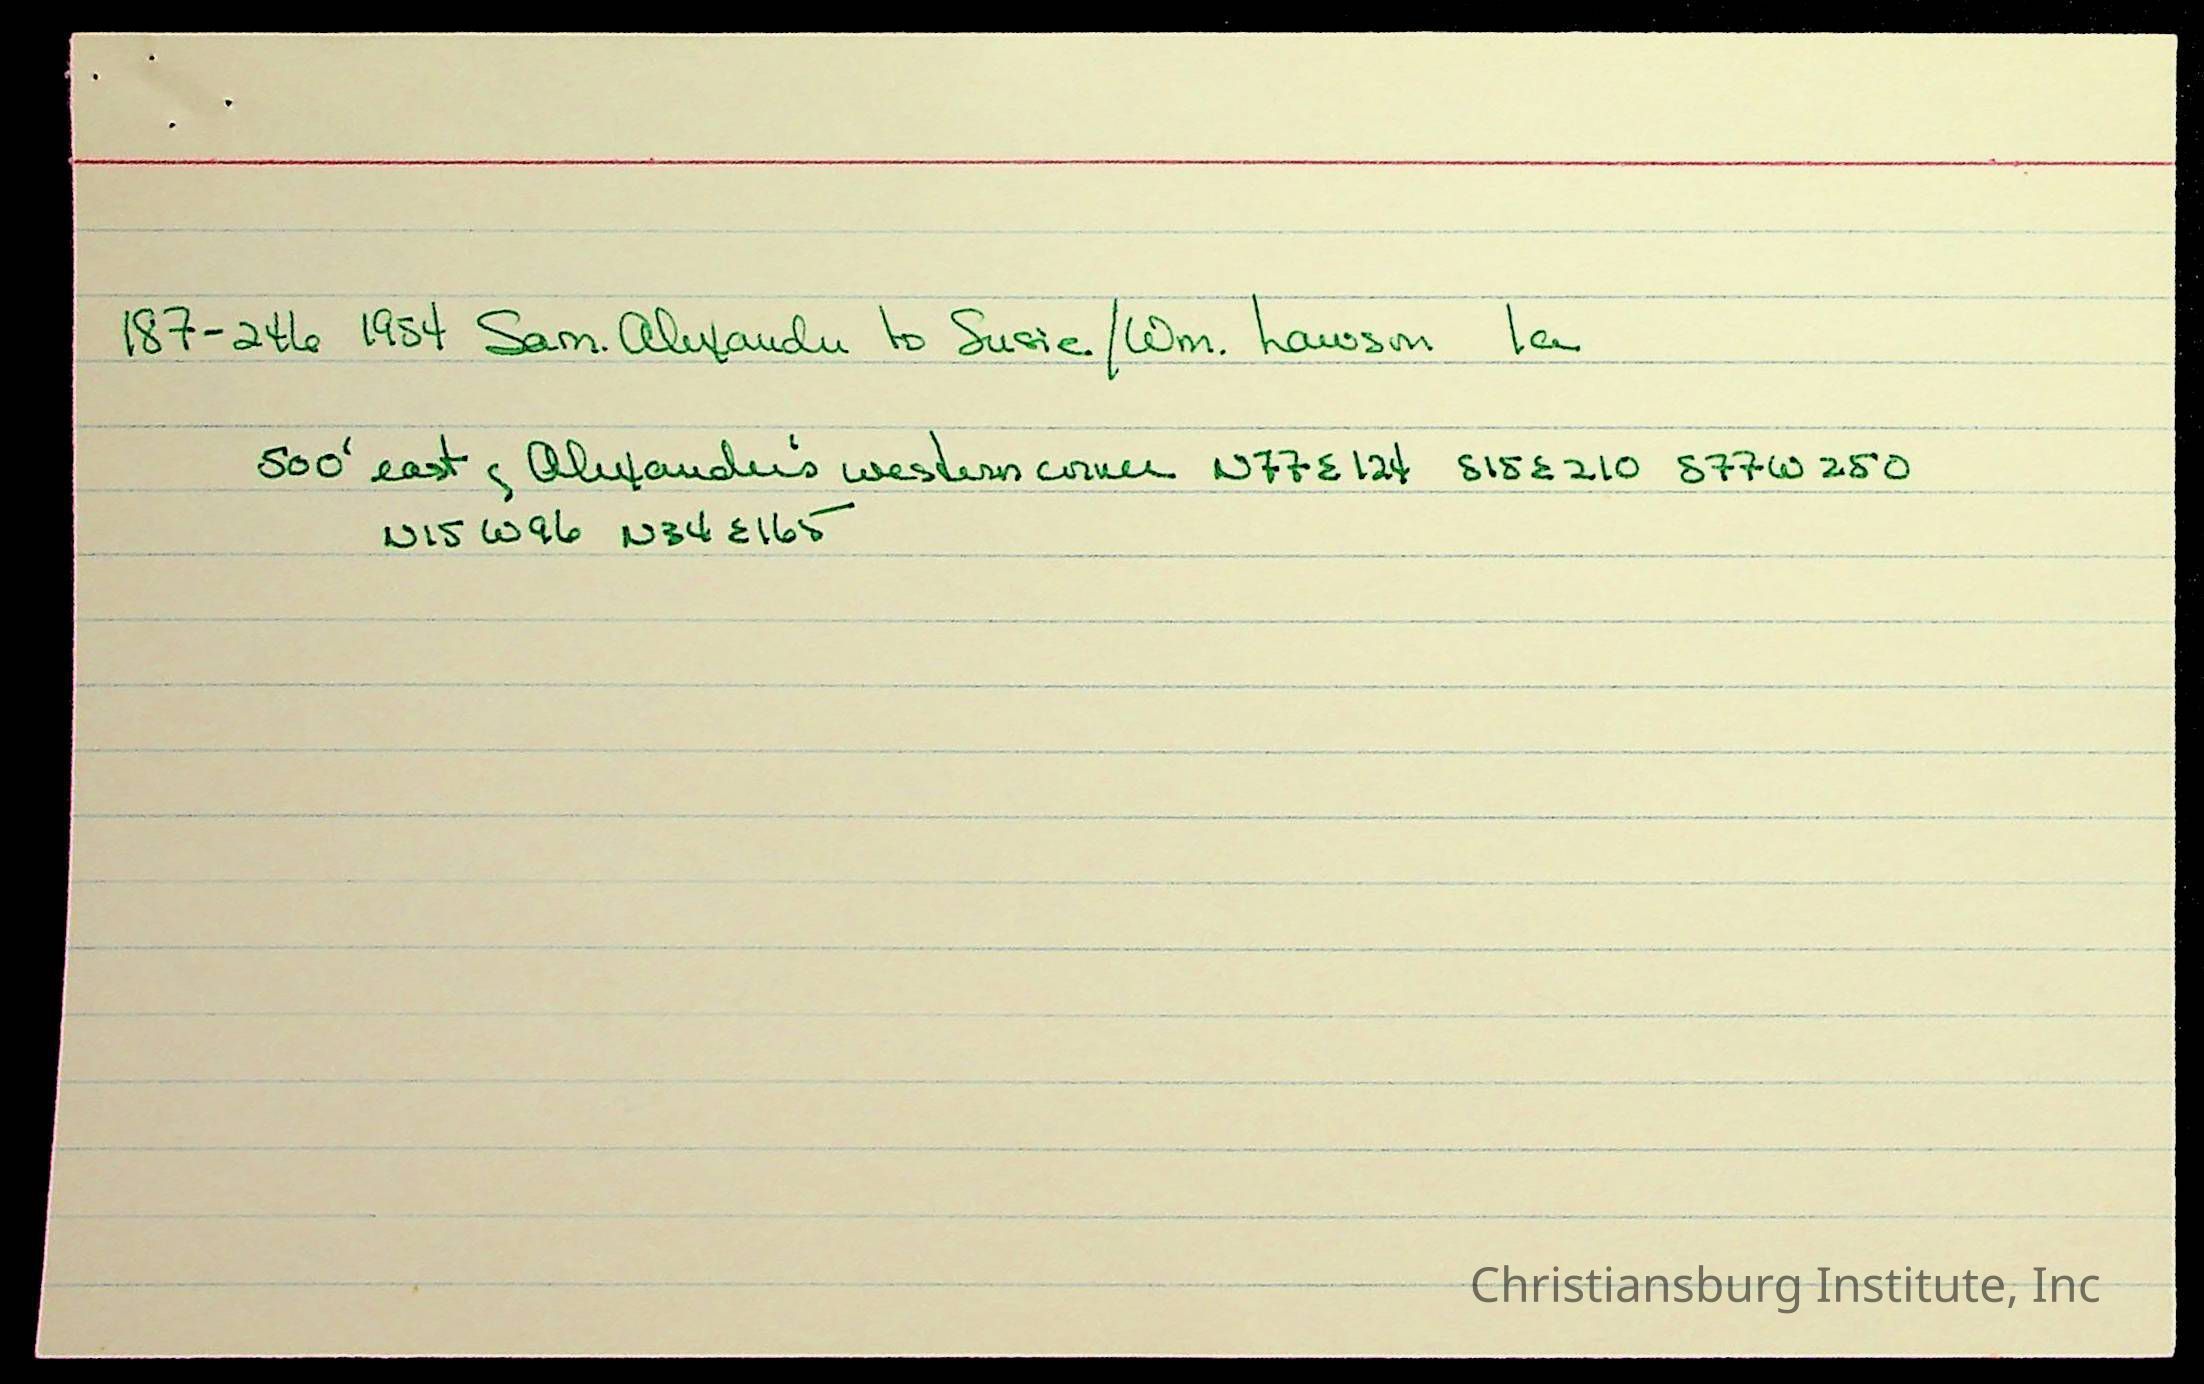 187-246 1954 Sam. Alexander to Susie/Wm. Lawson 1a
500' east of Alexander's western corner N77E124 S15E210 S77W250
N15W96 N34E165
Christiansburg Institute, Inc